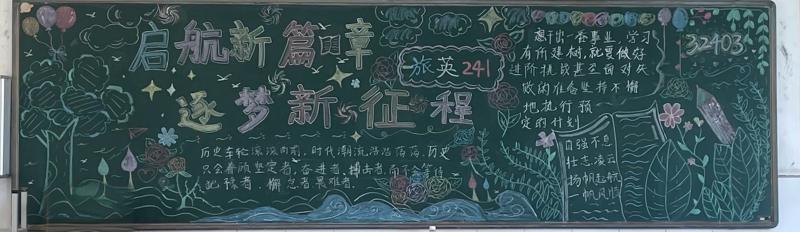 启航新篇章
逐梦新征程
旅英241
想干出一番事业，学习
有所建树，就要做好
进阶挑战甚至面对失
败的准备坚持不懈
地执行预
定的计划
32403
历史车轮滚滚向前，时代潮流浩浩荡荡。历史
只会眷顾坚定者、奋进者、搏击者，而不会等待
犹豫者、懈怠者、畏难者。
自强不息
壮志凌云
扬帆起航
一帆风顺